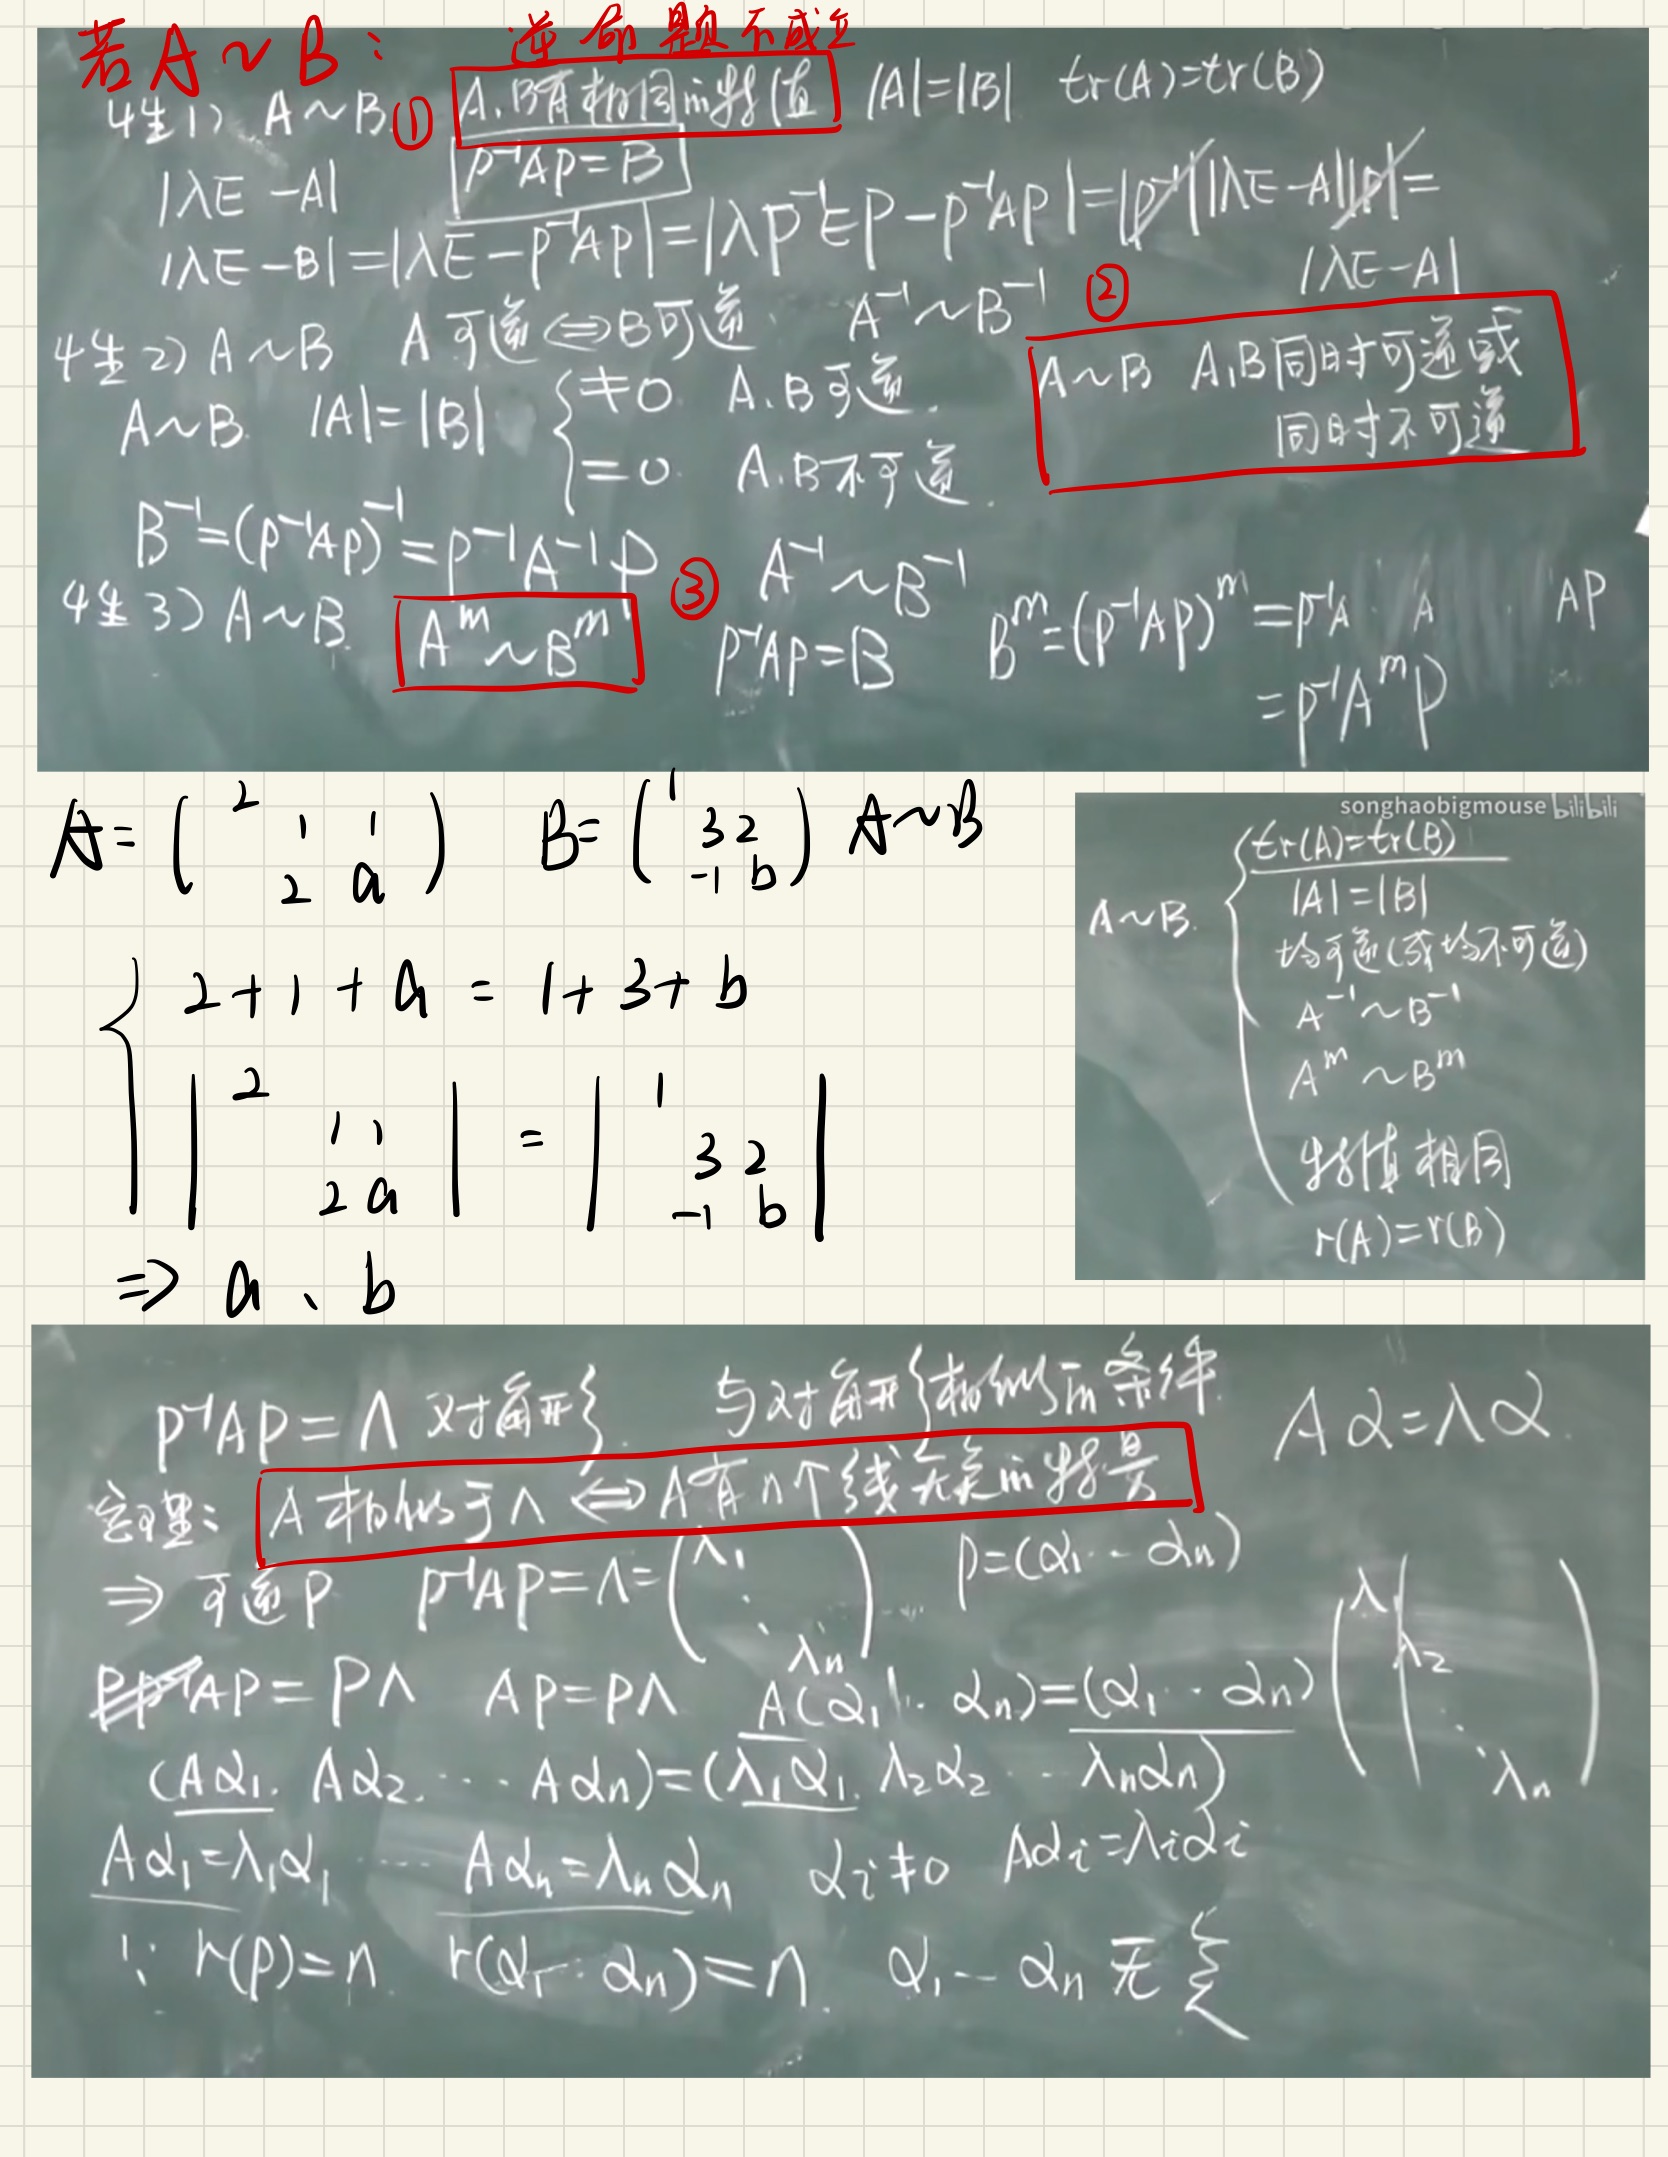 若A~B: 逆命题不成立
性1) A~B ① A、B有相同的特值 |A|=|B| tr(A)=tr(B)
|λE-A| P⁻¹AP=B
|λE-B|=|λE-P⁻¹AP|=|λP⁻¹EP-P⁻¹AP|=|P⁻¹||λE-A||P|=
|λE-A|
性2) A~B A可逆⇔B可逆 A⁻¹~B⁻¹ ②
A~B A,B同时可逆或
同时不可逆
A~B |A|=|B| { ≠0 A、B可逆.
=0 A、B不可逆.
B⁻¹=(P⁻¹AP)⁻¹=P⁻¹A⁻¹P A⁻¹~B⁻¹
性3) A~B. Aᵐ~Bᵐ ③ P⁻¹AP=B Bᵐ=(P⁻¹AP)ᵐ=P⁻¹A A AP
=P⁻¹AᵐP
A= ( 2 1 1 2 a ) B= ( 1 3 2 -1 b ) A~B
{ 2+1+a = 1+3+b
| 2 1 1 2 a | = | 1 3 2 -1 b |
⇒ a、b
songhaobigmouse bilibili
A~B. { tr(A)=tr(B)
|A|=|B|
均可逆(或均不可逆)
A⁻¹~B⁻¹
Aᵐ~Bᵐ
特值相同
r(A)=r(B)
P⁻¹AP=Λ 对角形. 与对角形相似的条件. Aα=λα.
定理: A相似于Λ⇔A有n个线无关的特量
⇒ 可逆P P⁻¹AP=Λ=( λ₁ ⋱ λn ) P=(α₁…αn)
PP⁻¹AP=PΛ AP=PΛ A(α₁…αn)=(α₁…αn) ( λ₁ λ₂ ⋱ λn )
(Aα₁. Aα₂. … Aαn)=(λ₁α₁. λ₂α₂ … λnαn)
Aα₁=λ₁α₁ … Aαn=λnαn αi≠0 Aαi=λiαi
∵ r(P)=n r(α₁…αn)=n. α₁…αn 无